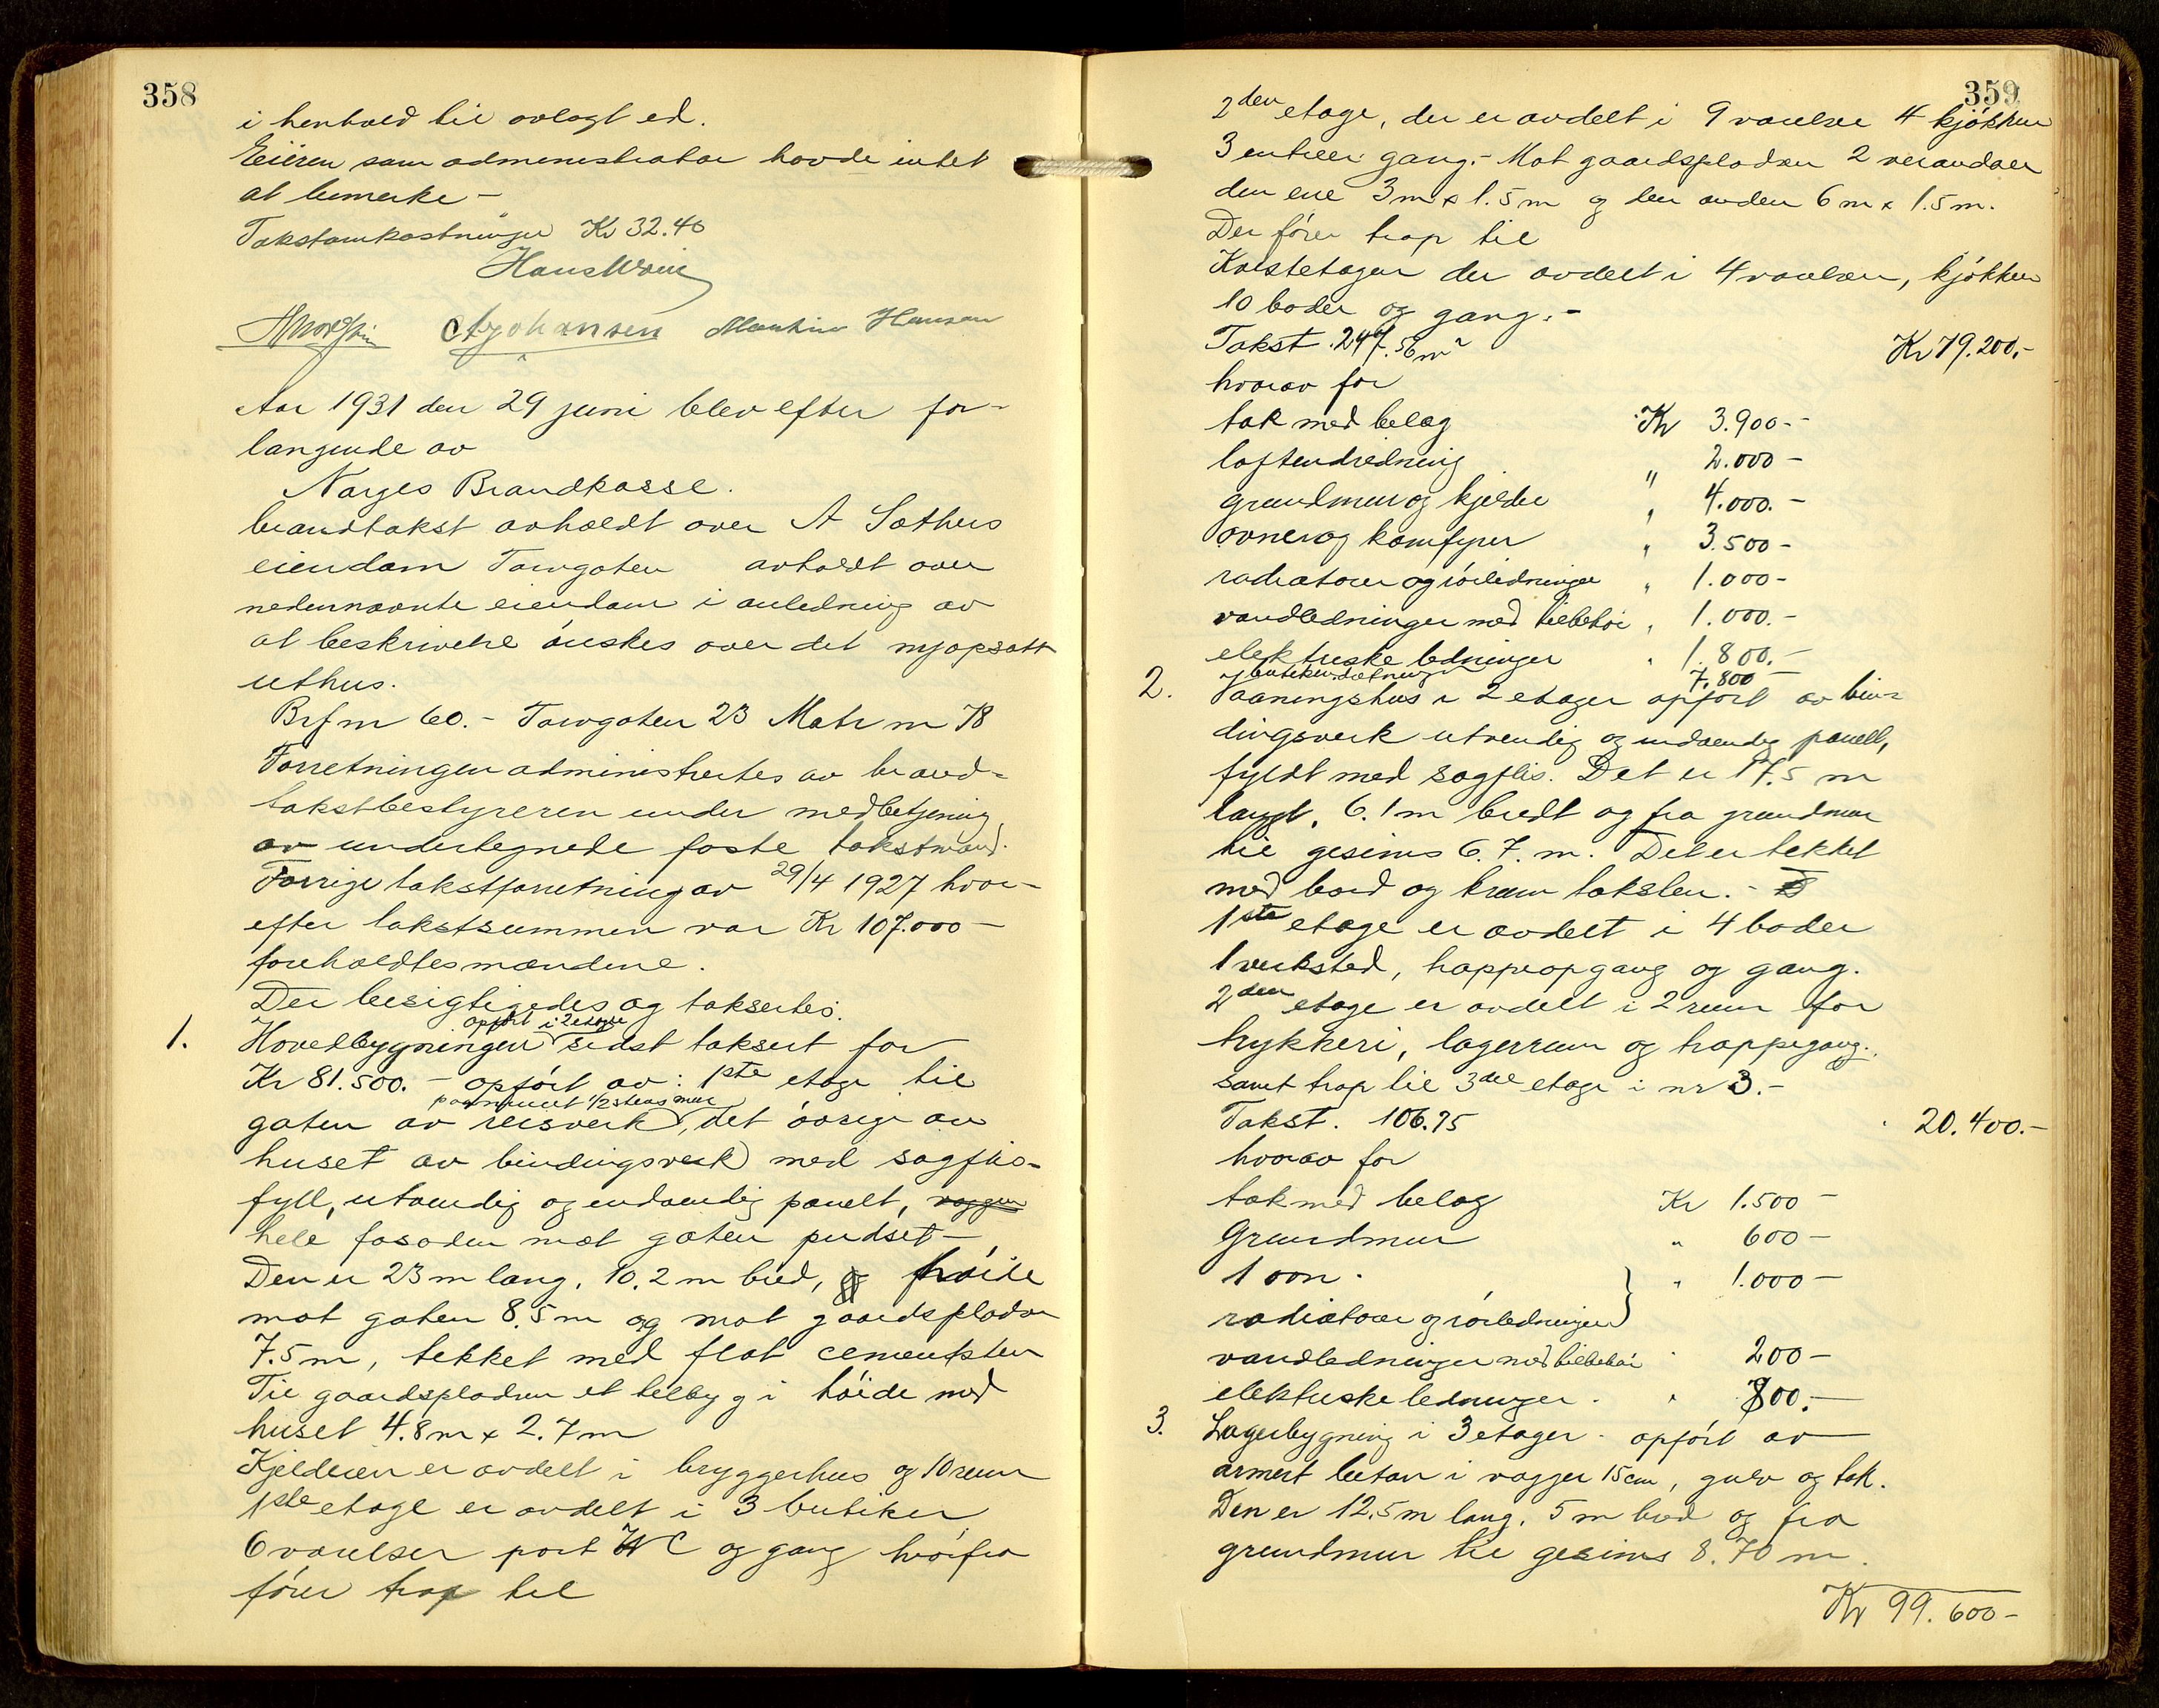 358
i henhold til avlagt ed.
Eieren som administrator havde intet
at bemerke –
Takstomkostninger Kr 32.40
Hans
A Johansen Martin Hansen
Aar 1931 den 29 juni blev efter for-
langende av
Norges Brandkasse.
brandtakst avholdt over A Sæthers
eiendom Torvgaten avholdt over
nedennævnte eiendom i anledning av
at beskrivelse ønskes over det nyopsatt
uthus.
Brf nr 60. – Torvgaten 23 Matr nr 78
Forretningen administrertes av brand-
takstbestyreren under medbetjening
av undertegnede faste takstmænd.
Forrige takstforretning av 29/4 1927 hvor-
efter takstsummen var Kr 107.000 –
foreholdtes mændene.
Der besigtigedes og taksertes.
opført i 2 etager
1. Hovedbygningen sidst taksert for
Kr 81.500. – opført av: 1ste etage til
paamuret 1/2 stens mur
gaten av reisverk, det øvrige av
huset av bindingsverk med sagflis-
fyll, utvendig og indvendig panelt, væggen
hele fasaden mot gaten pudset –
Den er 23 m lang, 10.2 m bred, og høide
mot gaten 8.5 m og mot gaardspladsen
7.5 m, tekket med flat cementsten
Til gaardspladsen et tilbyg i høide med
huset 4.8 m x 2.7 m
Kjelderen er avdelt i bryggerhus og 10 rum
1ste etage er avdelt i 3 butiker
6 værelser port WC og gang hvorfra
fører trap til
359
2den etage, der er avdelt i 9 værelser 4 kjøkken
3 entreer gang. – Mot gaardspladsen 2 verandaer
den ene 3 m x 1.5 m og den anden 6 m x 1.5 m.
Der fører trap til
Kvistetagen der avdelt i 4 værelser, kjøkken
10 boder og gang. –
Takst. 247.56 m² Kr 79.200,-
hvorav for
tak med belæg Kr 3.900 –
loftindredning " 2.000 –
grundmur og kjelder " 4.000. –
ovner og komfyrer " 3.500 –
radiatorer og rørledninger " 1.000 –
vandledninger med tilbehør " 1.000. –
elektriske ledninger " 1.800. –
butikindretning 7.800 –
2. Vaaningshus i 2 etager opført av bin-
dingsverk utvendig og indvendig panelt,
fyldt med sagflis. Det er 17.5 m
langt, 6.1 m bredt og fra grundmur
til gesims 6.7. m. Det er tekket
med bord og krum taksten. –
1ste etage er avdelt i 4 boder
1 verksted, trappeopgang og gang.
2den etage er avdelt i 2 rum for
trykkeri, lagerrum og trappegang.
samt trap til 3die etage i nr 3. –
Takst. 106.75 20.400. –
hvorav for
tak med belæg Kr 1.500 –
Grundmur " 600 –
1 ovn. " 1.000 –
radiatorer og rørledninger
vandledninger med tilbehør " 200 –
elektriske ledninger. " 800. –
3. Lagerbygning i 3 etager. opført av
armert beton i vægger 15 cm, gulv og tak.
Den er 12.5 m lang, 5 m bred og fra
grundmur til gesims 8.70 m.
Kr 99.600 –